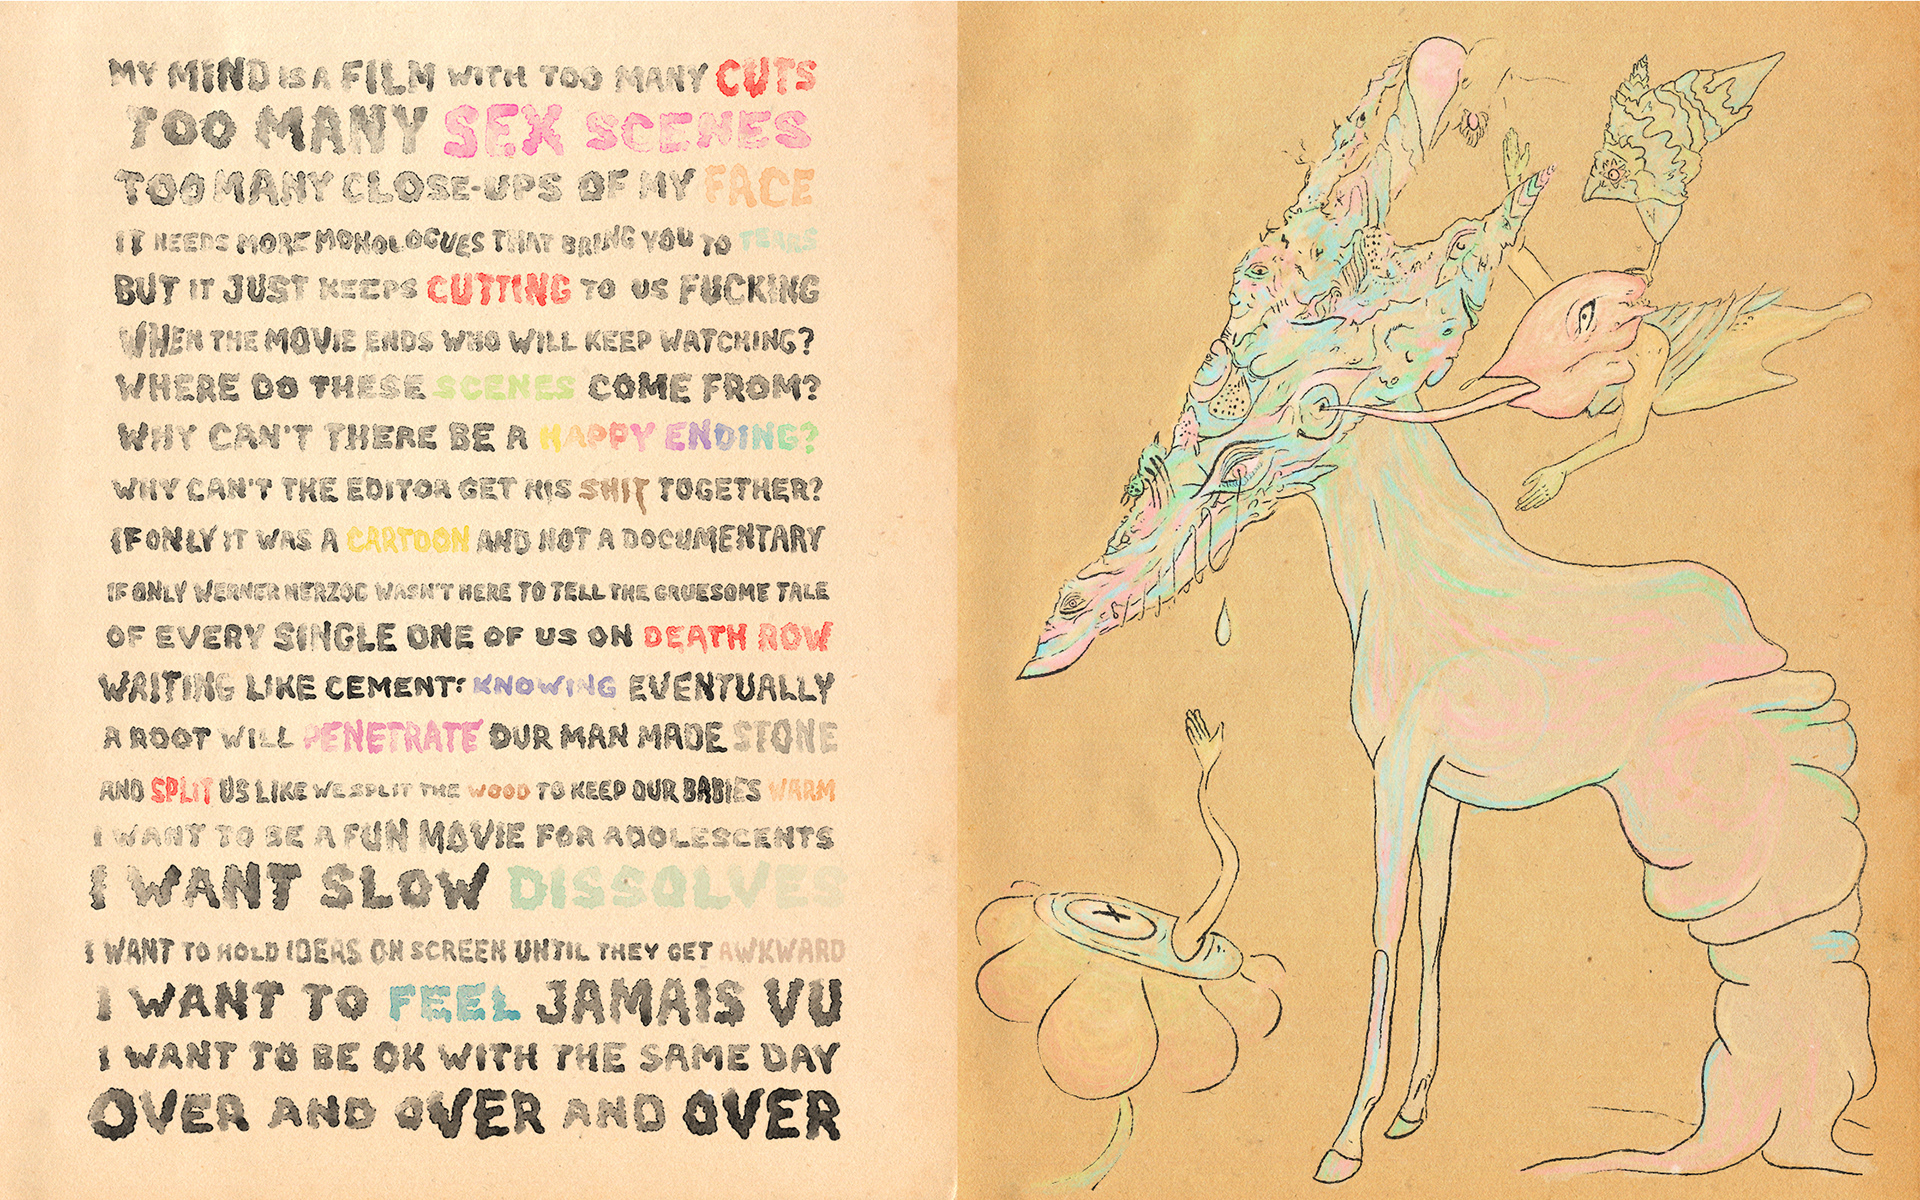 MY MIND IS A FILM WITH TOO MANY CUTS
TOO MANY SEX SCENES
TOO MANY CLOSE-UPS OF MY FACE
IT NEEDS MORE MONOLOGUES THAT BRING YOU TO TEARS
BUT IT JUST KEEPS CUTTING TO US FUCKING
WHEN THE MOVIE ENDS WHO WILL KEEP WATCHING?
WHERE DO THESE SCENES COME FROM?
WHY CAN'T THERE BE A HAPPY ENDING?
WHY CAN'T THE EDITOR GET HIS SHIT TOGETHER?
IF ONLY IT WAS A CARTOON AND NOT A DOCUMENTARY
IF ONLY WERNER HERZOG WASN'T HERE TO TELL THE GRUESOME TALE
OF EVERY SINGLE ONE OF US ON DEATH ROW
WAITING LIKE CEMENT: KNOWING EVENTUALLY
A ROOT WILL PENETRATE OUR MAN MADE STONE
AND SPLIT US LIKE WE SPLIT THE WOOD TO KEEP OUR BABIES WARM
I WANT TO BE A FUN MOVIE FOR ADOLESCENTS
I WANT SLOW DISSOLVES
I WANT TO HOLD IDEAS ON SCREEN UNTIL THEY GET AWKWARD
I WANT TO FEEL JAMAIS VU
I WANT TO BE OK WITH THE SAME DAY
OVER AND OVER AND OVER